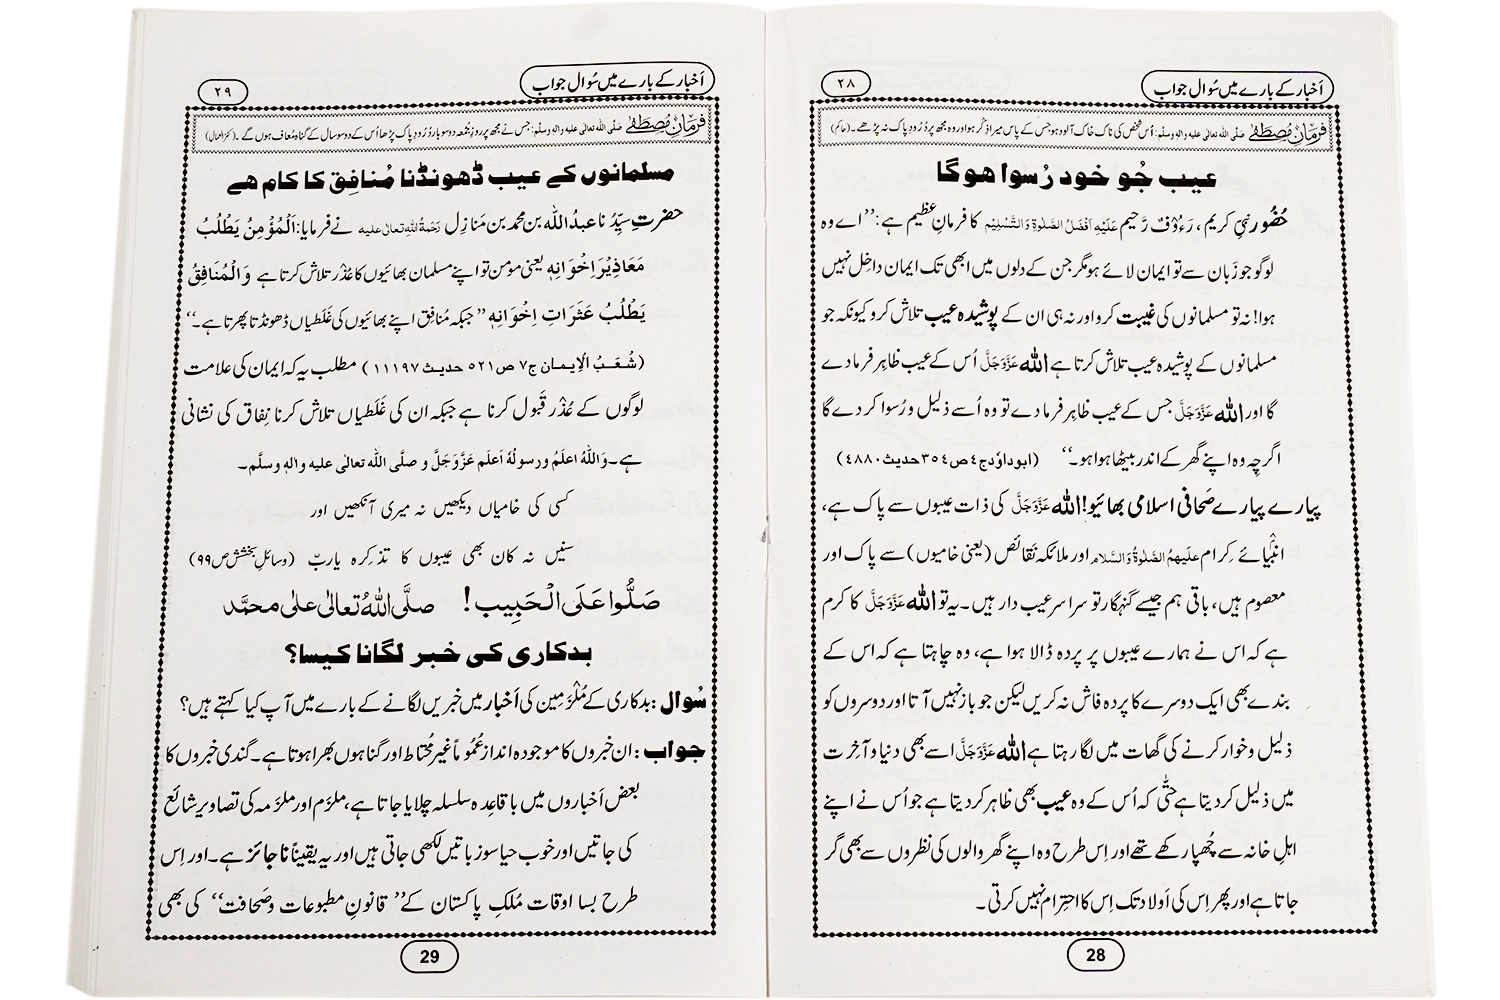 اَخبار کے بارے میں سُوال جواب
۲۸
فرمانِ مُصطَفٰے صلَّی اللہ تعالٰی علیہ واٰلہٖ وسلَّم: اُس شخص کی ناک خاک آلود ہو جس کے پاس میرا ذِکر ہو اور وہ مجھ پر دُرُودِ پاک نہ پڑھے۔ (حاکم)
عیب جُو خود رُسوا ھوگا
حُضُور نبیِّ کریم، رَءُوْفٌ رَّحیم عَلَیْہِ اَفْضَلُ الصَّلٰوۃِ وَالتَّسْلِیْم کا فرمانِ عظیم ہے: ’’اے وہ
لوگو جو زَبان سے تو ایمان لائے ہو مگر جن کے دلوں میں ابھی تک ایمان داخِل نہیں
ہوا! نہ تو مسلمانوں کی غیبت کرو اور نہ ہی ان کے پوشیدہ عیب تلاش کرو کیونکہ جو
مسلمانوں کے پوشیدہ عیب تلاش کرتا ہے اللہ عَزَّوَجَلَّ اُس کے عیب ظاہِر فرما دے
گا اور اللہ عَزَّوَجَلَّ جس کے عیب ظاہِر فرما دے تو وہ اُسے ذلیل و رُسوا کر دے گا
اگرچِہ وہ اپنے گھر کے اندر بیٹھا ہوا ہو۔‘‘ (ابوداوٗدج٤ص٣٥٤حدیث٤٨٨٠)
پیارے پیارے صَحافی اسلامی بھائیو! اللہ عَزَّوَجَلَّ کی ذات عیبوں سے پاک ہے،
انبِیائے کِرام علَیہِمُ الصَّلٰوۃُ وَالسَّلام اور ملائکہ نَقائص (یعنی خامیوں) سے پاک اور
معصوم ہیں، باقی ہم جیسے گنہگار تو سراسر عیب دار ہیں۔ یہ تو اللہ عَزَّوَجَلَّ کا کرم
ہے کہ اس نے ہمارے عیبوں پر پردہ ڈالا ہوا ہے، وہ چاہتا ہے کہ اس کے
بندے بھی ایک دوسرے کا پردہ فاش نہ کریں لیکن جو باز نہیں آتا اور دوسروں کو
ذلیل و خوار کرنے کی گھات میں لگا رہتا ہے اللہ عَزَّوَجَلَّ اسے بھی دنیا و آخِرت
میں ذلیل کر دیتا ہے حتّٰی کہ اُس کے وہ عیب بھی ظاہر کر دیتا ہے جو اُس نے اپنے
اہلِ خانہ سے چُھپا رکھے تھے اور اِس طرح وہ اپنے گھر والوں کی نظروں سے بھی گر
جاتا ہے اور پھر اِس کی اَولاد تک اِس کا احتِرام نہیں کرتی۔
28
اَخبار کے بارے میں سُوال جواب
۲۹
فرمانِ مُصطَفٰے صلَّی اللہ تعالٰی علیہ واٰلہٖ وسلَّم: جس نے مجھ پر روزِ جُمعہ دو سو بار دُرُودِ پاک پڑھا اُس کے دو سو سال کے گناہ مُعاف ہوں گے۔ (کنزالعمال)
مسلمانوں کے عیب ڈھونڈنا مُنافِق کا کام ھے
حضرتِ سیِّدُنا عبدُ اللہ بن محمد بن مَنازِل رَحمَۃُ اللہِ تعالٰی علیہ نے فرمایا: اَلْمُؤْمِنُ یَطْلُبُ
مَعَاذِیْرَ اِخْوَانِہٖ یعنی مومن تو اپنے مسلمان بھائیوں کا عُذْر تلاش کرتا ہے وَالْمُنَافِقُ
یَطْلُبُ عَثَرَاتِ اِخْوَانِہٖ ’’جبکہ مُنافِق اپنے بھائیوں کی غَلَطیاں ڈھونڈتا پھرتا ہے۔‘‘
(شُعَبُ الْاِیمان ج٧ ص٥٢١ حدیث١١١٩٧) مطلب یہ کہ ایمان کی علامت
لوگوں کے عُذْر قَبول کرنا ہے جبکہ ان کی غَلَطیاں تلاش کرنا نِفاق کی نشانی
ہے۔ وَاللہُ اعلَمُ ورسولُہٗ اَعلَم عَزَّوَجَلَّ و صلَّی اللہ تعالٰی علیہ واٰلہٖ وسلَّم۔
کسی کی خامیاں دیکھیں نہ میری آنکھیں اور
سنیں نہ کان بھی عیبوں کا تذکِرہ یاربّ (وسائلِ بخشش ص۹۹)
صَلُّوْا عَلَی الْحَبِیْب! صلَّی اللہُ تعالٰی علٰی محمَّد
بدکاری کی خبر لگانا کیسا؟
سُوال: بدکاری کے مُلْزَمین کی اَخبار میں خبریں لگانے کے بارے میں آپ کیا کہتے ہیں؟
جواب: ان خبروں کا موجودہ انداز عُمُوماً غیر مُحتاط اور گناہوں بھرا ہوتا ہے۔ گندی خبروں کا
بعض اَخباروں میں باقاعِدہ سلسلہ چلایا جاتا ہے، ملزَم اور ملزَمہ کی تصاویر شائع
کی جاتیں اور خوب حیا سوز باتیں لکھی جاتی ہیں اور یہ یقیناً ناجائز ہے۔ اور اِس
طرح بسا اوقات مُلکِ پاکستان کے ’’قانونِ مطبوعات و صَحافت‘‘ کی بھی
29